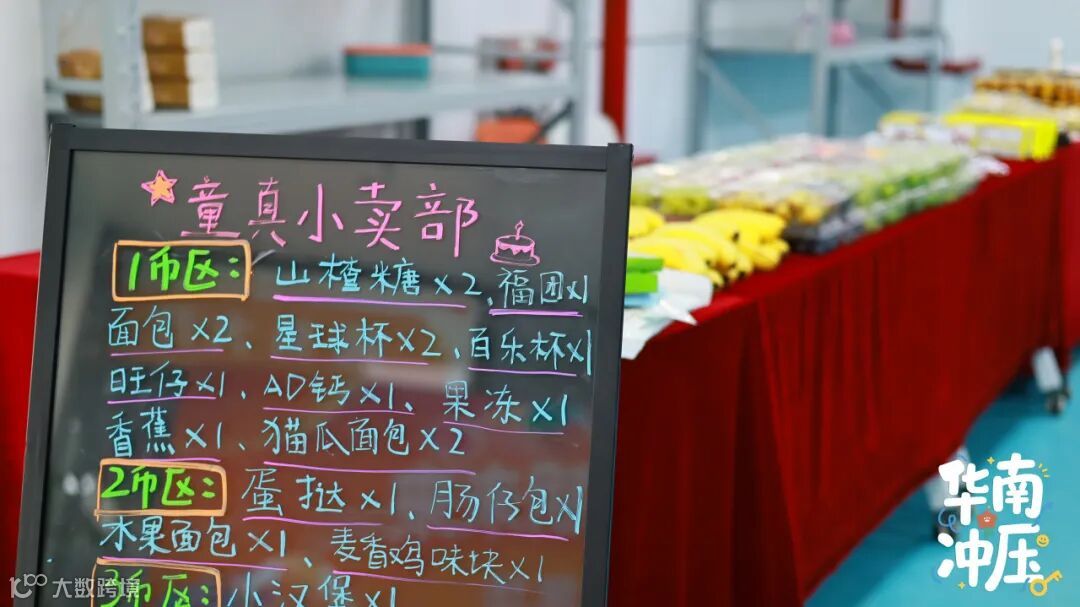 童真小卖部
1币区: 山楂糖×2、福团×1
面包×2、星球杯×2、百乐杯×1
旺仔×1、AD钙×1、果冻×1
香蕉×1、猫瓜面包×2
2币区: 蛋挞×1、肠仔包×1
水果面包×1、麦香鸡味块×1
3币区: 小汉堡×1
华南
冲压
大数跨境